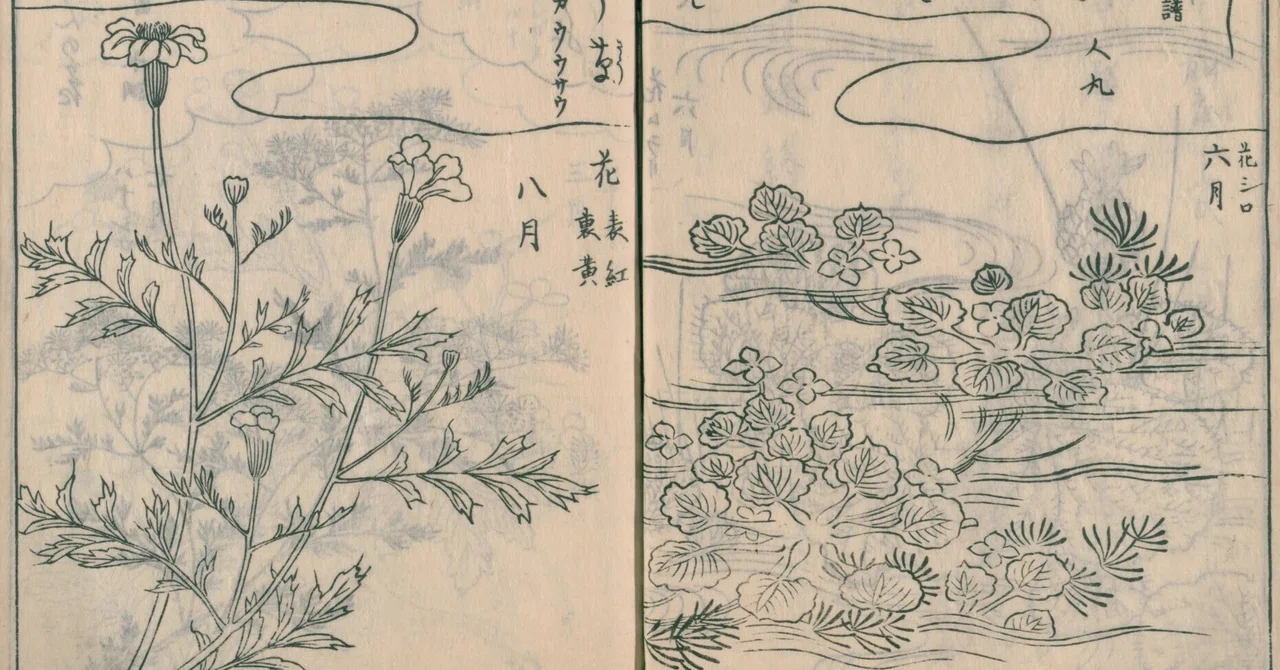 譜
人丸
花シロ
六月
草
さう
カウウサウ
花
表紅
裏黄
八月